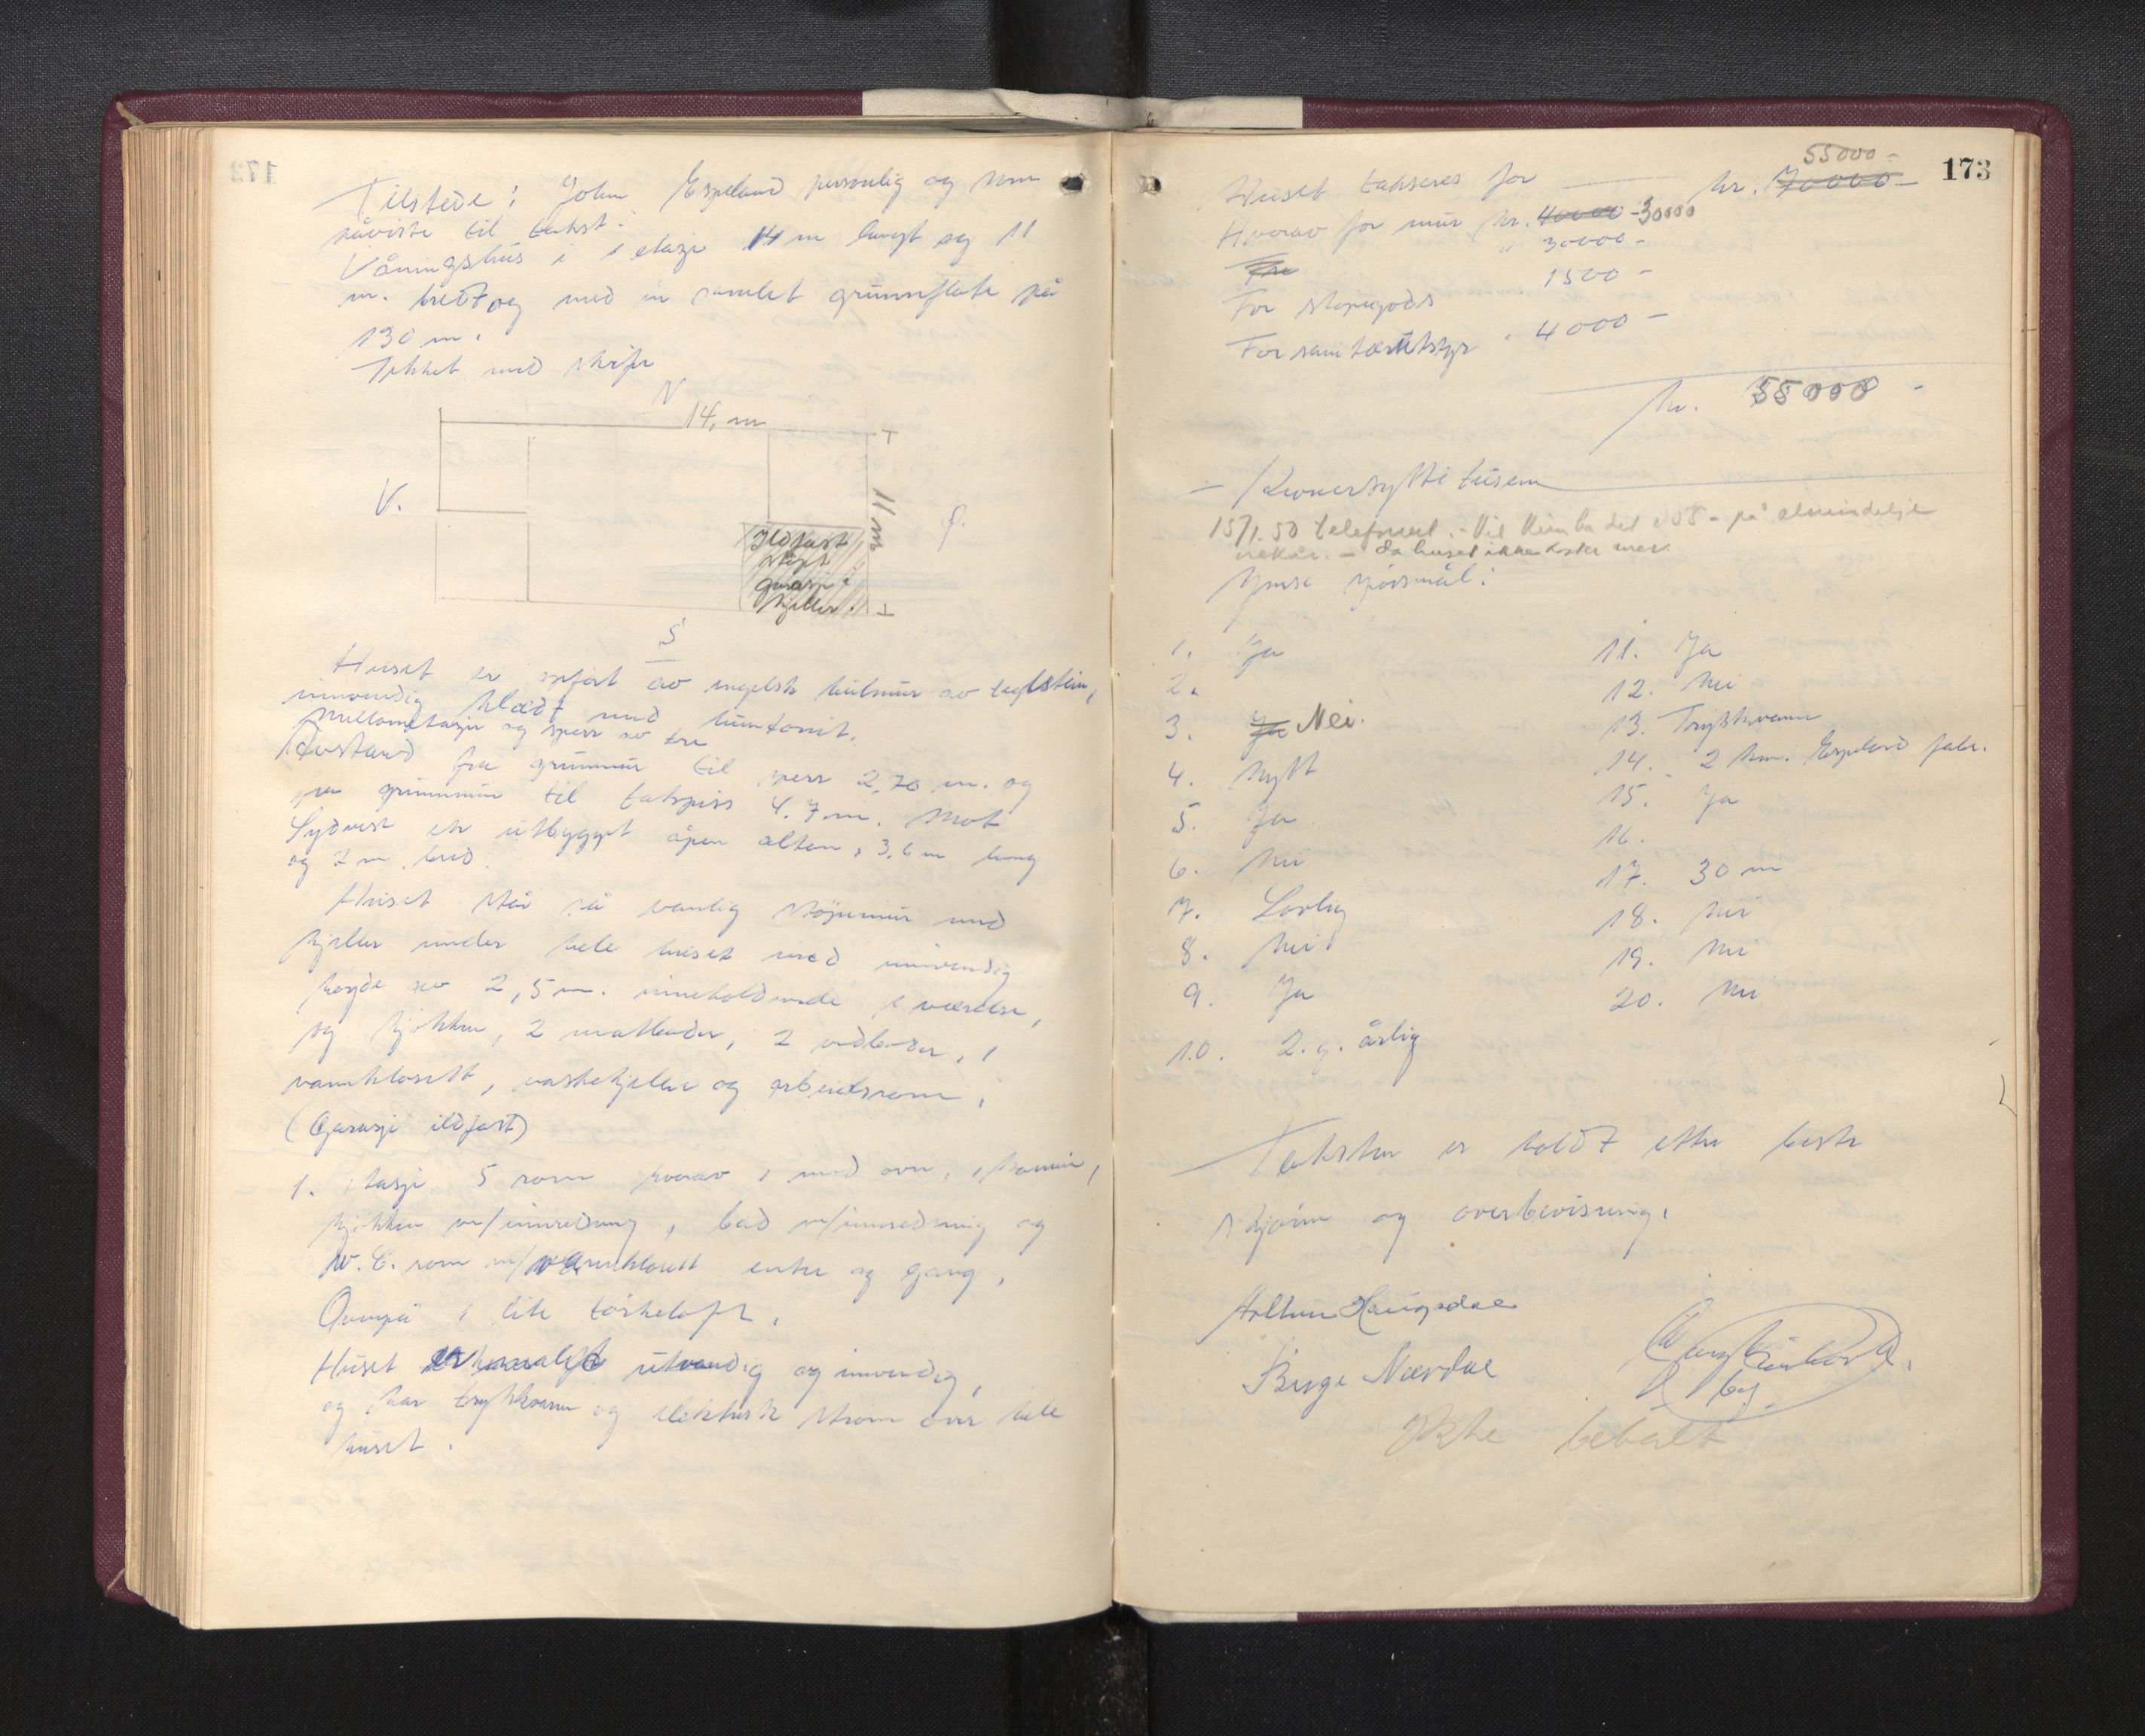 Tilstede: John Espeland personlig og som
påviste til takst:
Våningshus i 1 etasje 14 m langt og 11
m. bredt og med en samlet grunnflate på
130 m.
Tekket med skifer
N
14, m
V.
11 m
Ø.
Ildfast
støpt
garasje i
kjeller.
S
Huset er opført av engelsk hulmur av teglstein,
innvendig klædt med huntonit.
Mellometasje og sperr av tre
Avstand fra grunnmur til sperr 2,70 m. og
fra grunnmur til takspiss 4.7 m. Mot
Sydvest er utbygget åpen altan, 3,6 m lang
og 2 m bred.
Huset står på vanlig støpemur med
kjeller under hele huset med innvendig
høyde av 2,5 m. inneholdende 1 værelse,
og kjøkken, 2 matboder, 2 vedboder, 1
vannklosett, vaskekjeller og arbeidsrom.
(Garasje ildfast)
1. etasje 5 rom hvorav 1 med ovn, 1 kamin,
kjøkken m/innredning, bad m/innredning og
W.C. rom m/vannklosett entre og gang,
Ovenpå 1 lite tørkeloft.
Huset er malt utvendig og innvendig,
og har trykkvann og elektrisk strøm over hele
huset.
173
55000-
Huset takseres for kr. 70000-
Hvorav for mur kr. 40000 - 30000
Tre " 30000-
For støpegods 1500-
For sanitærutstyr 4000-
kr. 55000-
- Kronersyttitusen
15/1.50 telefonert. - Vil kun ha det i 55- på almindelige
vilkår. - da huset ikke koster mer.
Ymse spørsmål:
1. Ja
2.
3. Ja Nei.
4. Nytt
5. Ja
6. Nei
7. Lovlig
8. Nei
9. Ja
10. 2. g. årlig
11. Ja
12. Nei
13. Trykkvann
14. 2 km. Espeland fabr.
15. Ja
16.
17. 30 m
18. Nei
19. Nei
20. Nei
Taksten er holdt etter beste
skjønn og overbevisning.
Haugsdal
Birger Nævdal
Ikke betalt